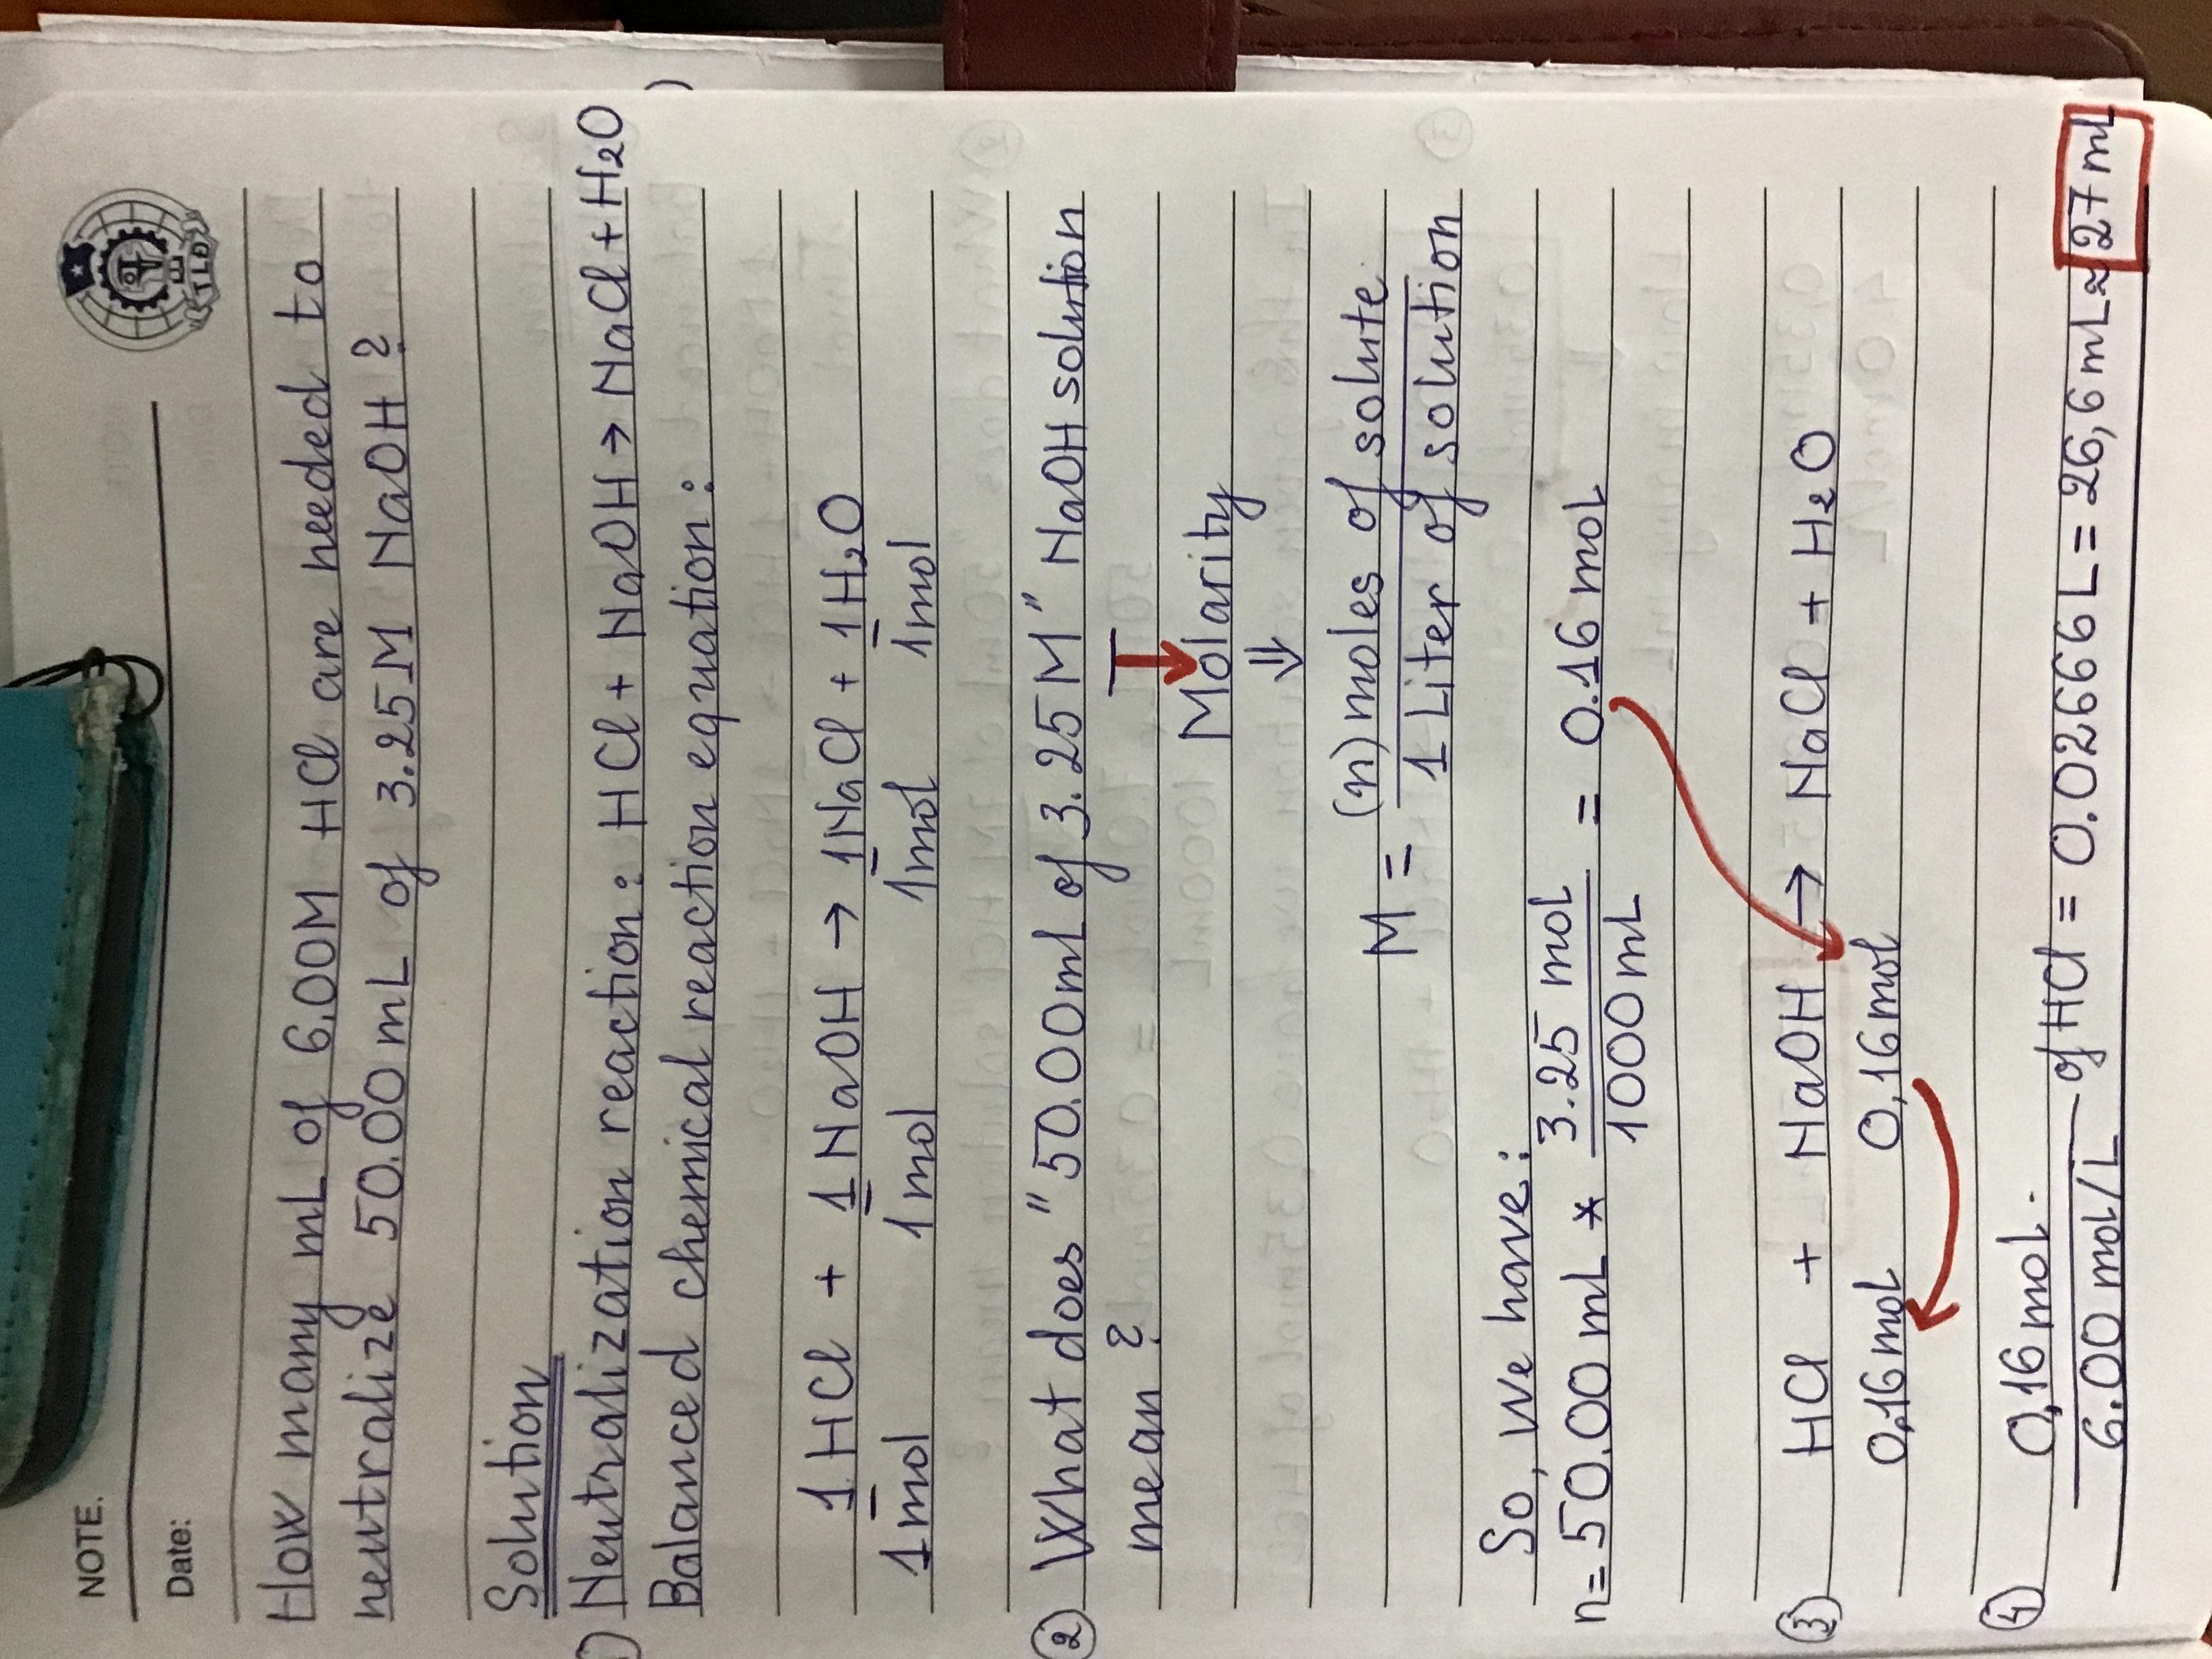 NOTE.
Date:
How many mL of 6.00M HCl are needed to
neutralize 50.00 mL of 3.25M NaOH?
Solution
1) Neutralization reaction: HCl + NaOH → NaCl + H₂O
Balanced chemical reaction equation:
1HCl + 1NaOH → 1NaCl + 1H₂O
1mol 1mol 1mol 1mol
② What does "50.00ml of 3.25M" NaOH solution
mean?
Molarity
⇓
M = (n) moles of solute
1 Liter of solution
So, we have:
n = 50.00 mL * 3.25 mol / 1000 mL = 0.16 mol
③ HCl + NaOH → NaCl + H₂O
0,16mol 0,16mol
④ 0,16 mol
6.00 mol/L of HCl = 0.02666 L = 26,6 mL ≈ 27 mL